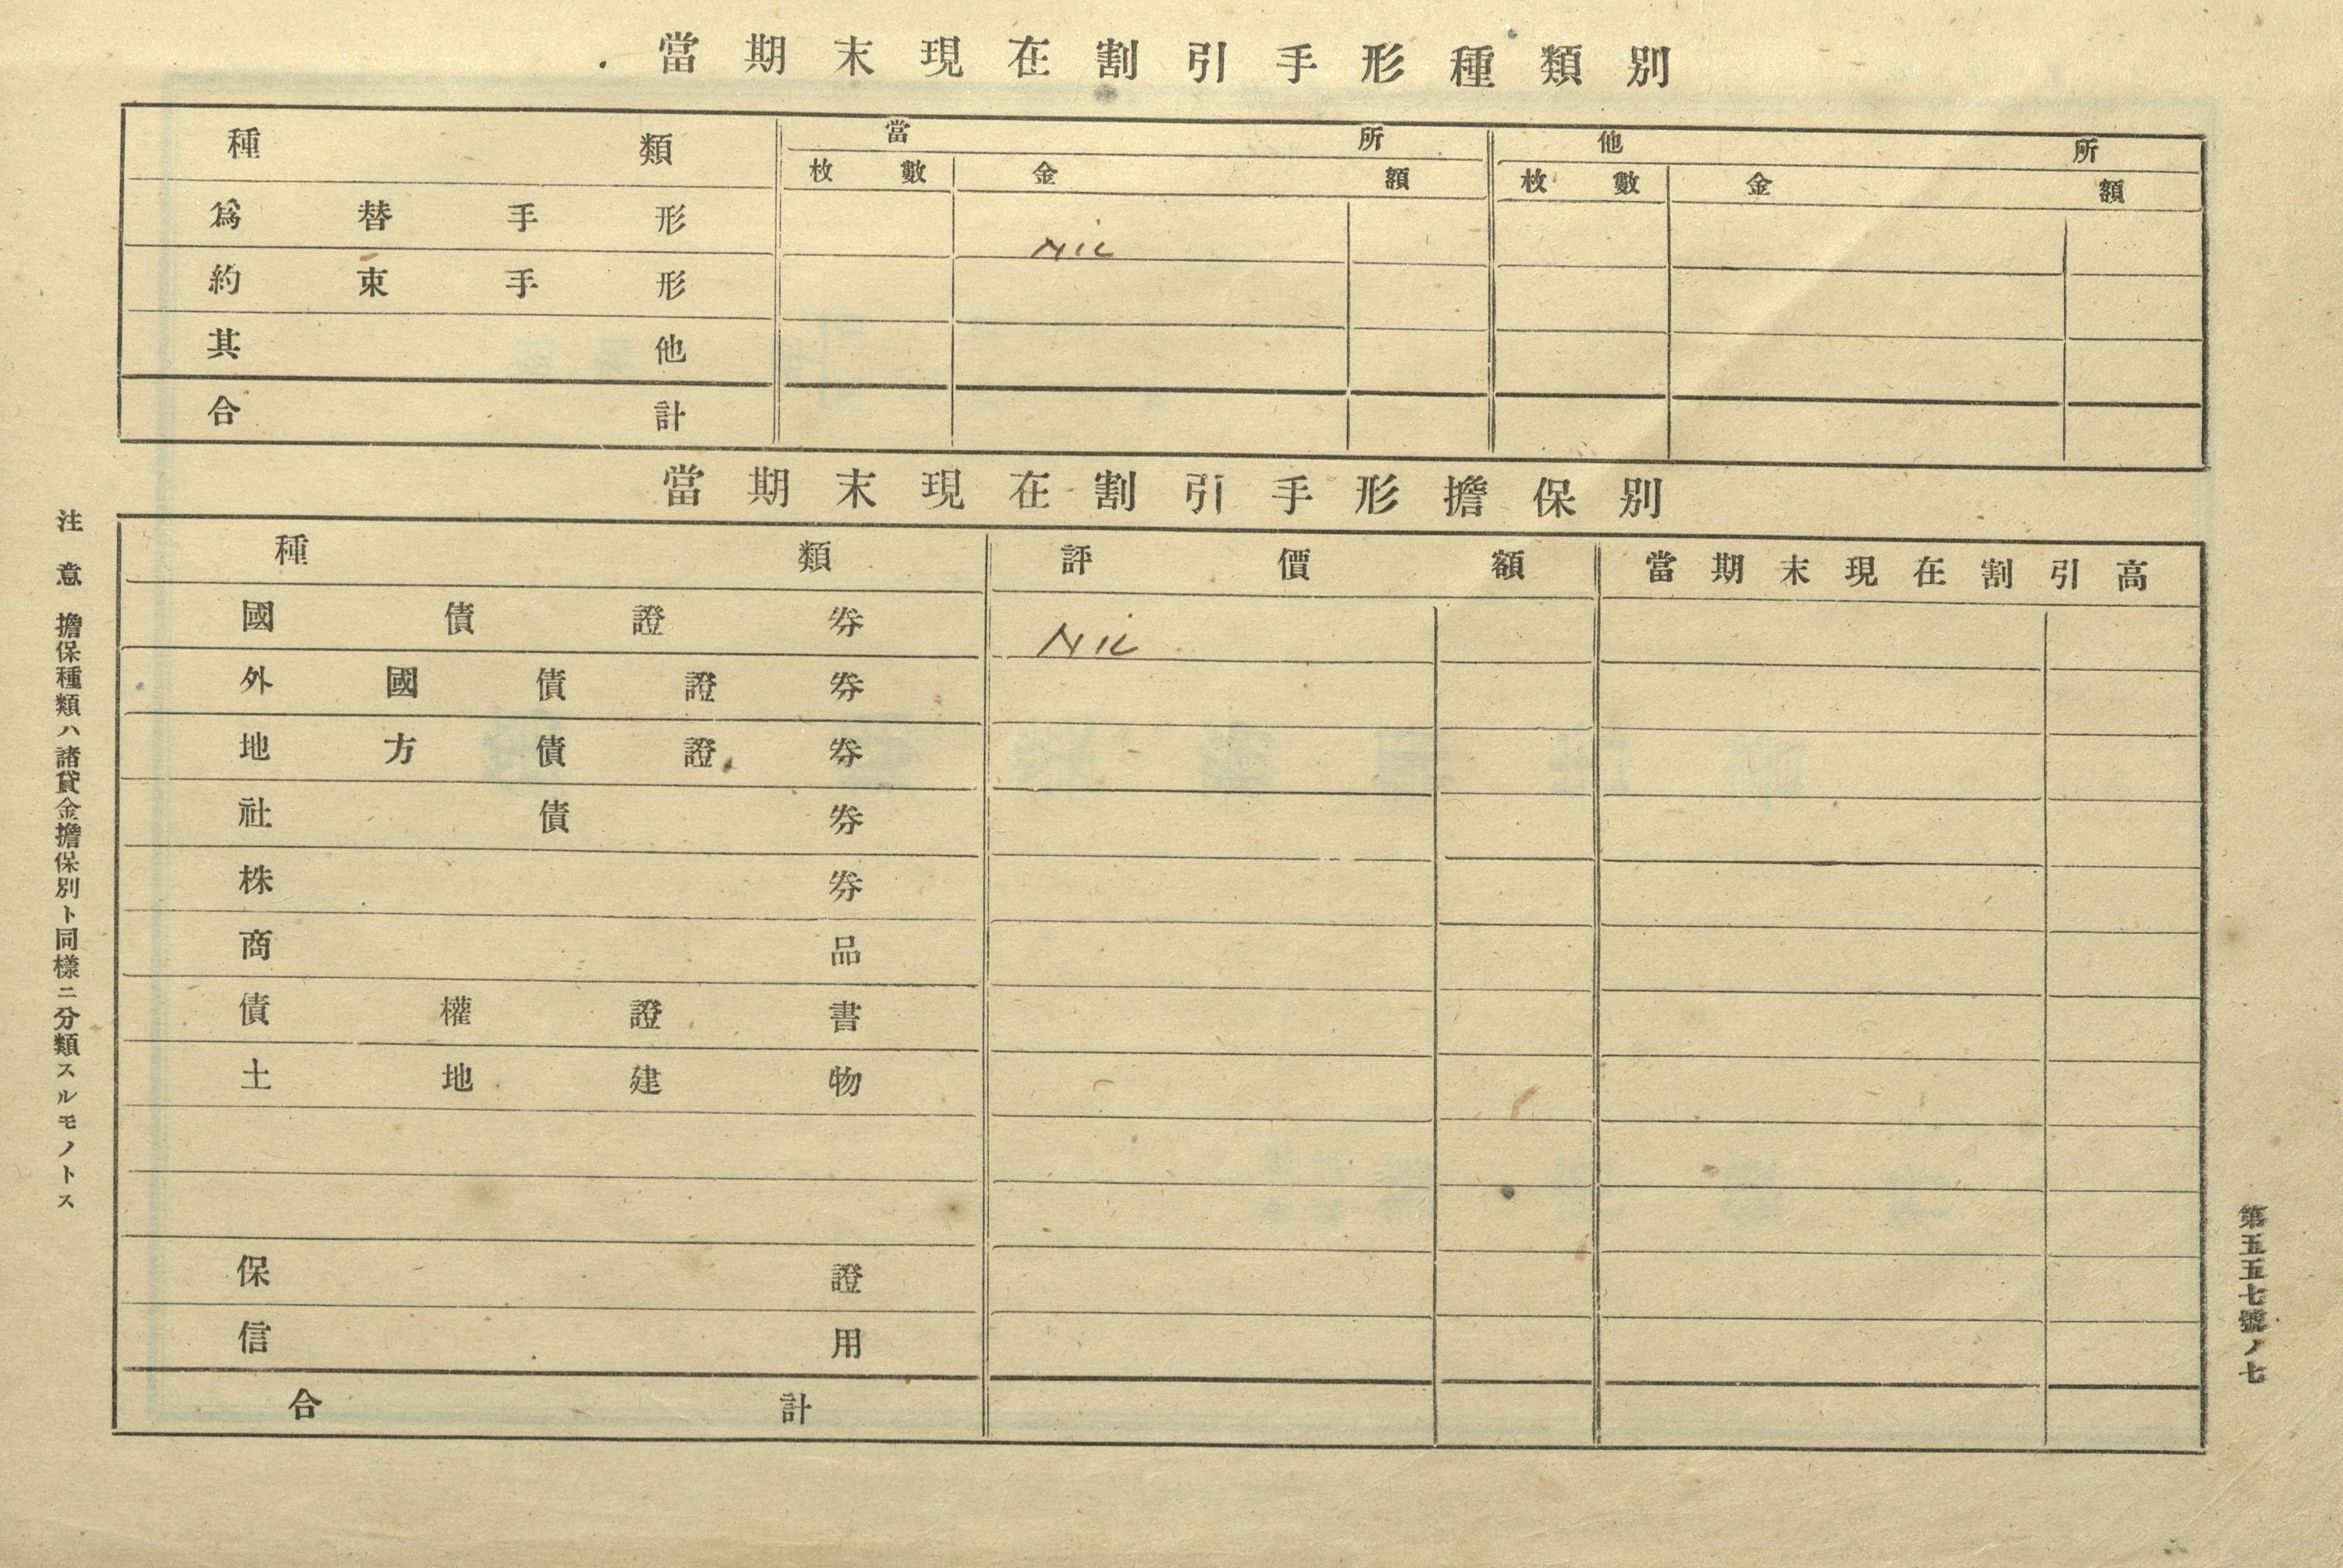 當期末現在割引手形種類別
種類 當所 他所
枚數 金額 枚數 金額
爲替手形
Nil
約束手形
其他
合計
當期末現在割引手形擔保別
種類 評價額 當期末現在割引高
國債證券 Nil
外國債證券
地方債證券
社債券
株券
商品
債權證書
土地建物
保證
信用
合計
注意 擔保種類ハ諸貸金擔保別ト同樣ニ分類スルモノトス
第五五七號ノ七